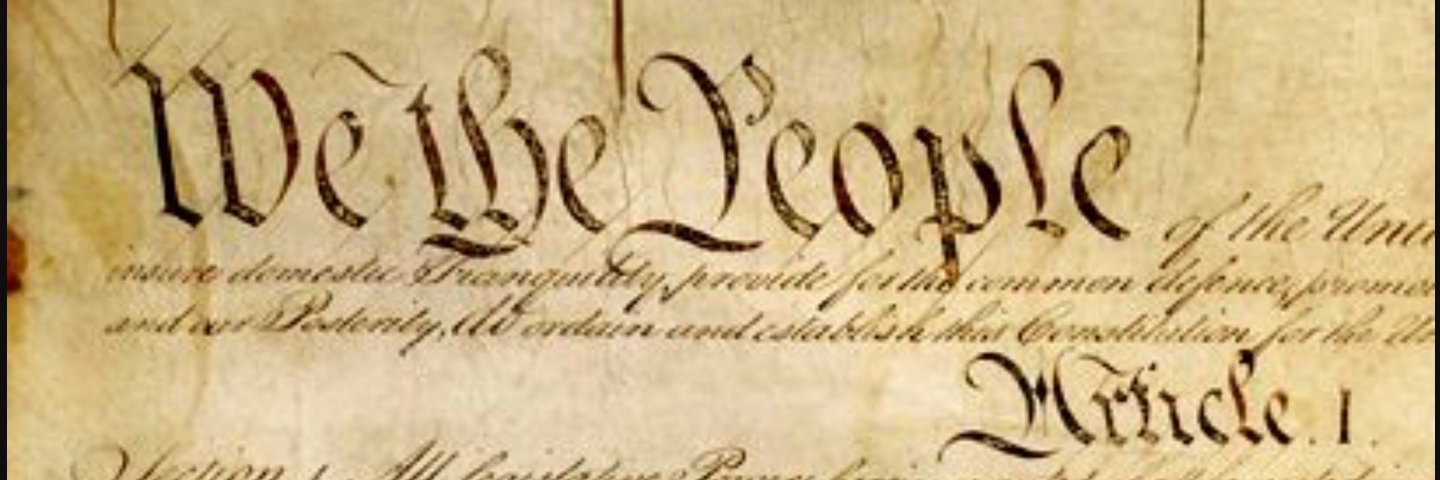 We the People of the Uni
insure domestic Tranquility, provide for the common defence, promo
and our Posterity, do ordain and establish this Constitution for the Un
Article. I.
Section. 1. All legislative Powers herein